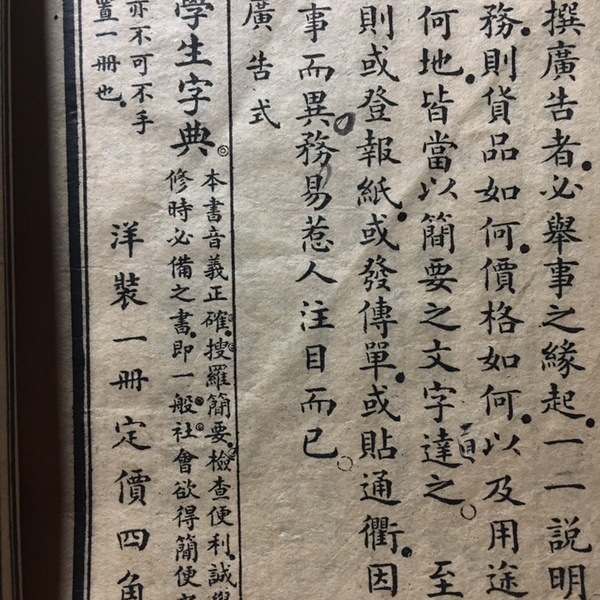 撰廣告者必舉事之緣起一一說明
務則貨品如何價格如何以及用途
何地皆當以簡要之文字達之 至
則或登報紙或發傳單或貼通衢因
事而異務易惹人注目而已
廣告式
學生字典
本書音義正確搜羅簡要檢查便利誠學
修時必備之書即一般社會欲得簡便字
亦不可不手
置一冊也
洋裝一冊定價四角